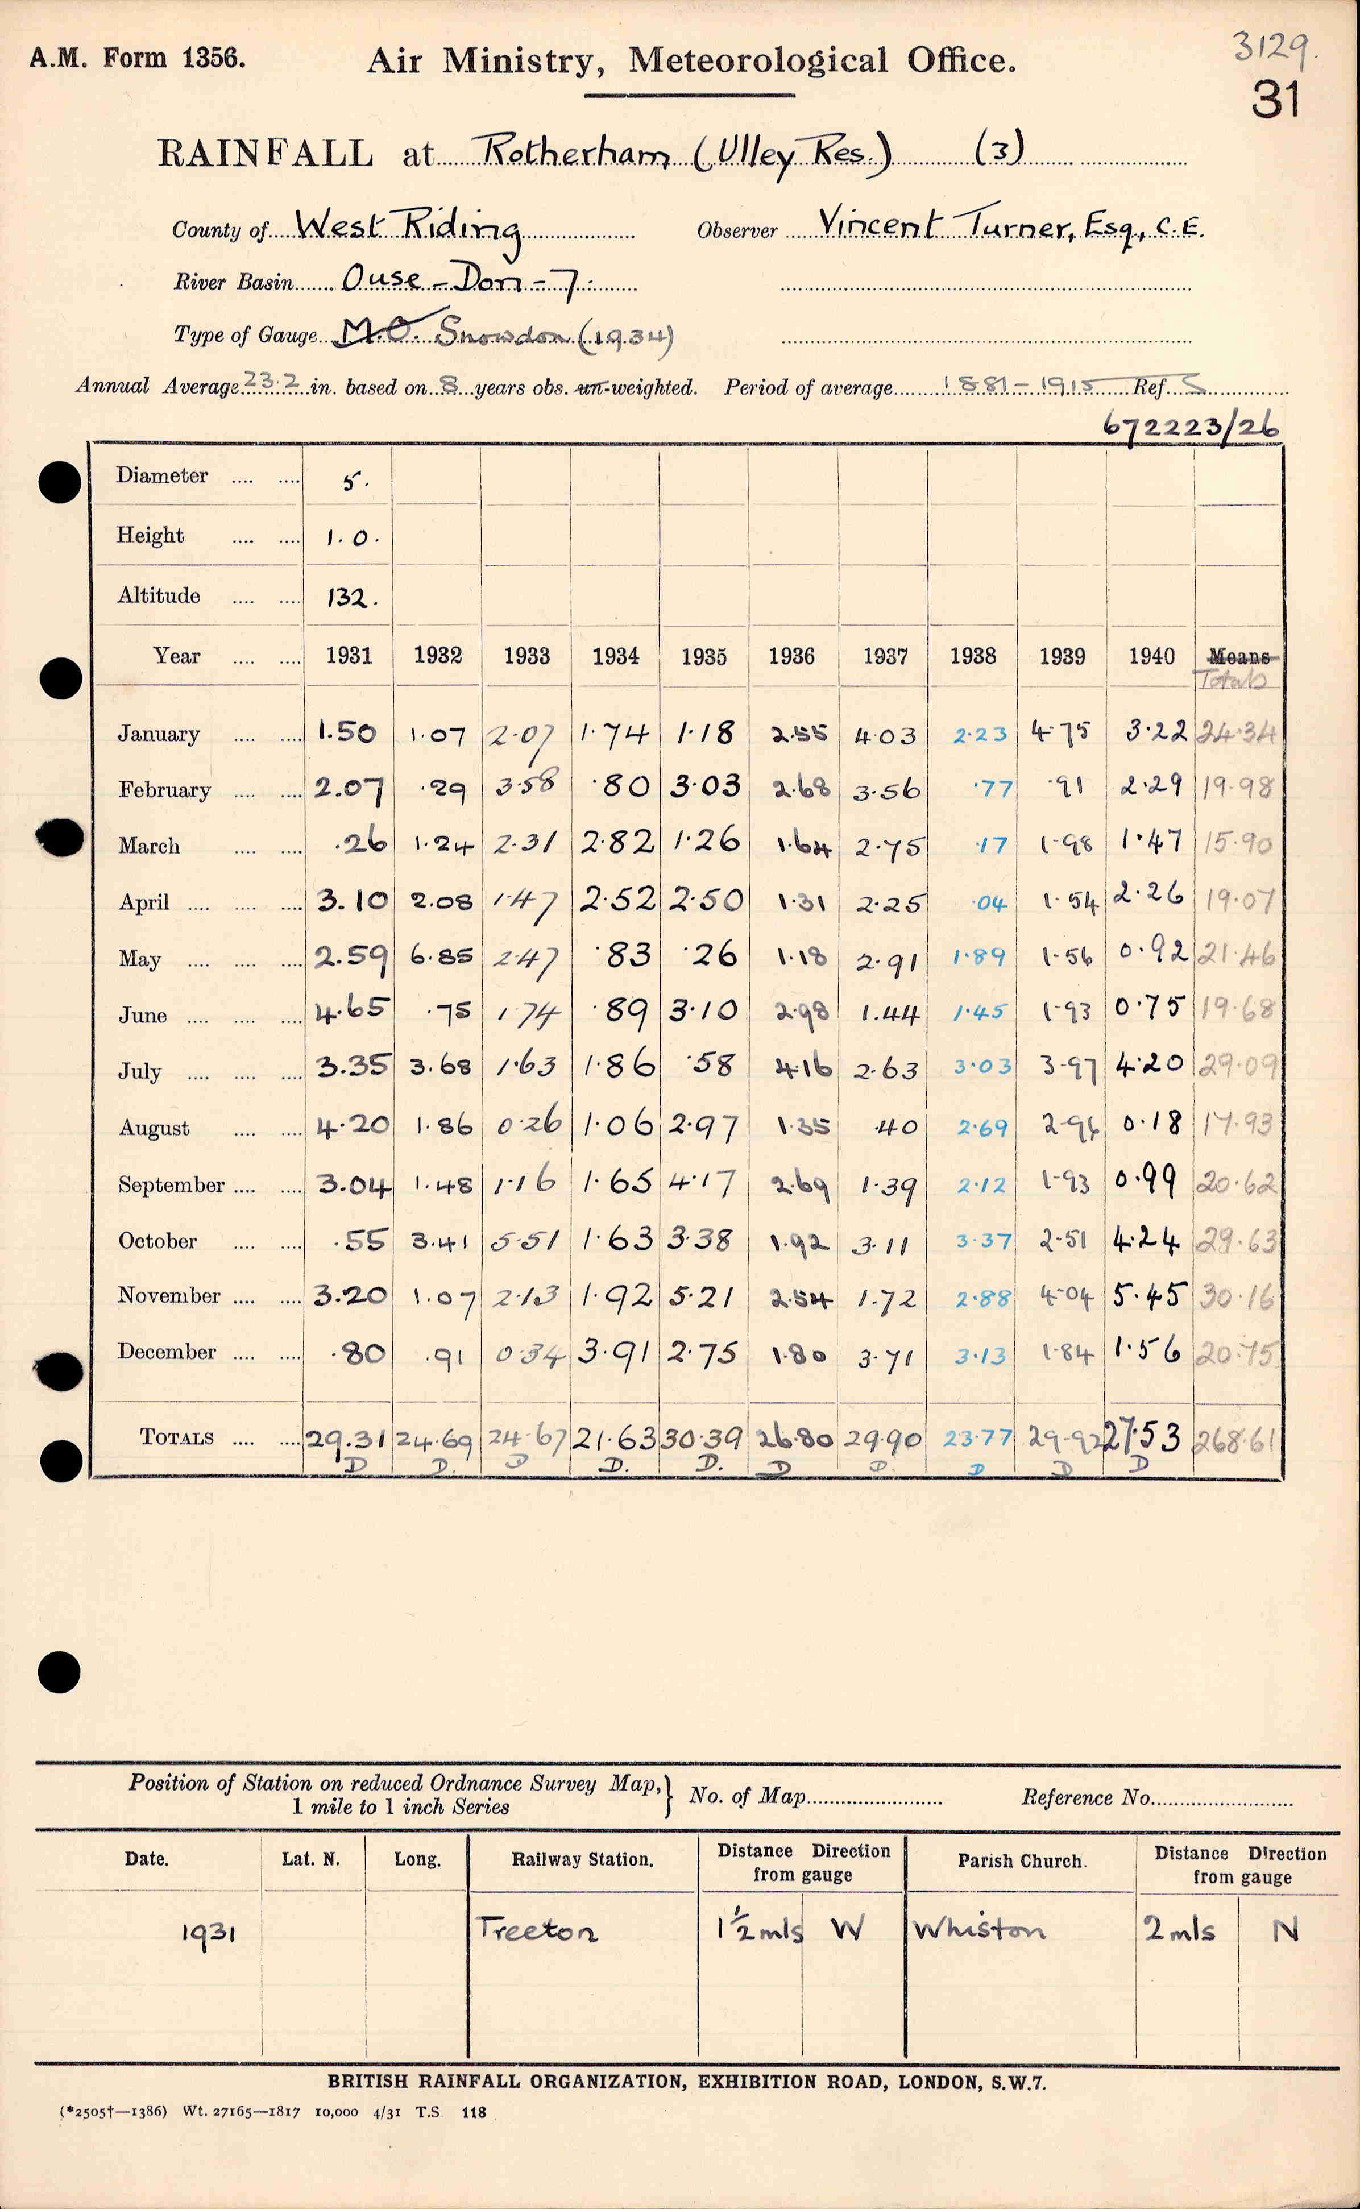 A.M. Form 1356. Air Ministry, Meteorological Office. 3129.
31
RAINFALL at Rotherham (Ulley Res.) (3)
County of West Riding Observer Vincent Turner, Esq., C.E.
River Basin Ouse - Don - 7.
Type of Gauge M.O. Snowdon (1934)
Annual Average 23.2 in. based on 8 years obs. un-weighted. Period of average 1881-1915 Ref. S
672223/26
Diameter .... .... 5.
Height .... .... 1.0.
Altitude .... .... 132.
Year .... .... 1931 1932 1933 1934 1935 1936 1937 1938 1939 1940 Means
Totals
January .... .... 1.50 1.07 2.07 1.74 1.18 2.55 4.03 2.23 4.75 3.22 24.34
February .... .... 2.07 .29 3.58 .80 3.03 2.68 3.56 .77 .91 2.29 19.98
March .... .... .26 1.24 2.31 2.82 1.26 1.64 2.75 .17 1.98 1.47 15.90
April .... .... .... 3.10 2.08 1.47 2.52 2.50 1.31 2.25 .04 1.54 2.26 19.07
May .... .... .... 2.59 6.85 2.47 .83 .26 1.18 2.91 1.89 1.56 0.92 21.46
June .... .... .... 4.65 .75 1.74 .89 3.10 2.98 1.44 1.45 1.93 0.75 19.68
July .... .... .... 3.35 3.68 1.63 1.86 .58 4.16 2.63 3.03 3.97 4.20 29.09
August .... .... 4.20 1.86 0.26 1.06 2.97 1.35 .40 2.69 2.96 0.18 17.93
September .... .... 3.04 1.48 1.16 1.65 4.17 2.69 1.39 2.12 1.93 0.99 20.62
October .... .... .55 3.41 5.51 1.63 3.38 1.92 3.11 3.37 2.51 4.24 29.63
November .... .... 3.20 1.07 2.13 1.92 5.21 2.54 1.72 2.88 4.04 5.45 30.16
December .... .... .80 .91 0.34 3.91 2.75 1.80 3.71 3.13 1.84 1.56 20.75
TOTALS .... .... 29.31 24.69 24.67 21.63 30.39 26.80 29.90 23.77 29.92 27.53 268.61
D D. D D. D. D D. D D D
Position of Station on reduced Ordnance Survey Map, } No. of Map Reference No.
1 mile to 1 inch Series
Date. Lat. N. Long. Railway Station. Distance Direction from gauge Parish Church. Distance Direction from gauge
1931 Treeton 1½ mls W Whiston 2 mls N
BRITISH RAINFALL ORGANIZATION, EXHIBITION ROAD, LONDON, S.W.7.
(*2505†—1386) Wt. 27165—1817 10,000 4/31 T.S. 118